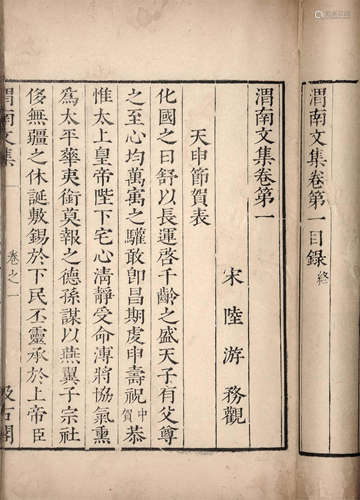 易拍全球
渭南文集卷第一目録終
渭南文集卷第一
宋陸游務觀
天申節賀表
化國之日舒以長運啓千齡之盛天子有父尊
之至心均萬寓之驩敢卽昌期虔申壽祝中賀恭
惟太上皇帝陛下宅心清靜受命溥將協氣熏
爲太平華夷銜莫報之德孫謀以燕翼子宗社
侈無疆之休誕敷錫於下民丕靈承於上帝臣
渭南文集
卷之一
汲古閣